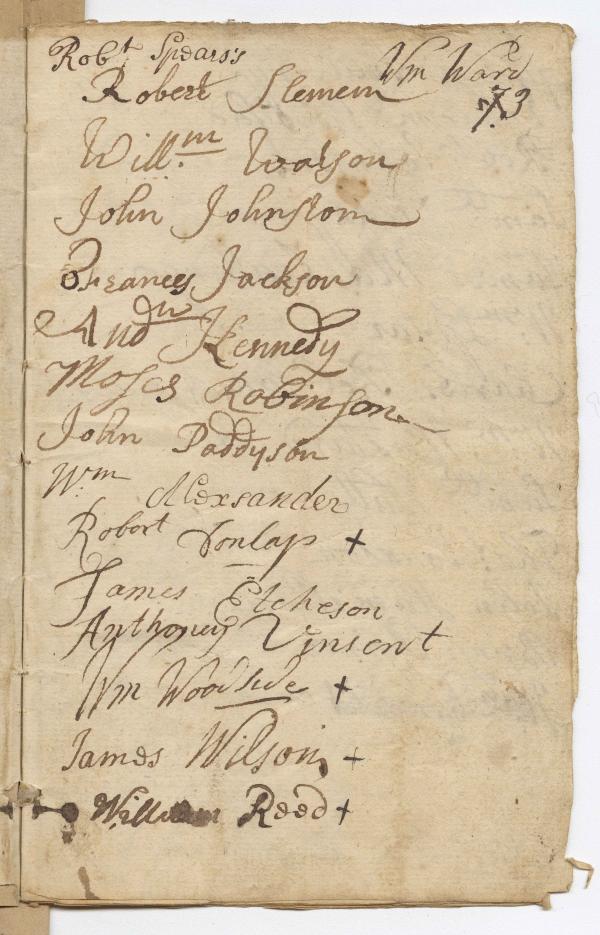 Robt Spears's
Wm Ward
73
Robert Slemein
Willm Watson
John Johnstom
Frances Jackson
Andw Kennedy
Moses Robinson
John Paddyson
Wm Alexsander
Robort Donlap +
James Etcheson
Anthoney Vinsent
Wm Woodside +
James Wilson +
William Reed +